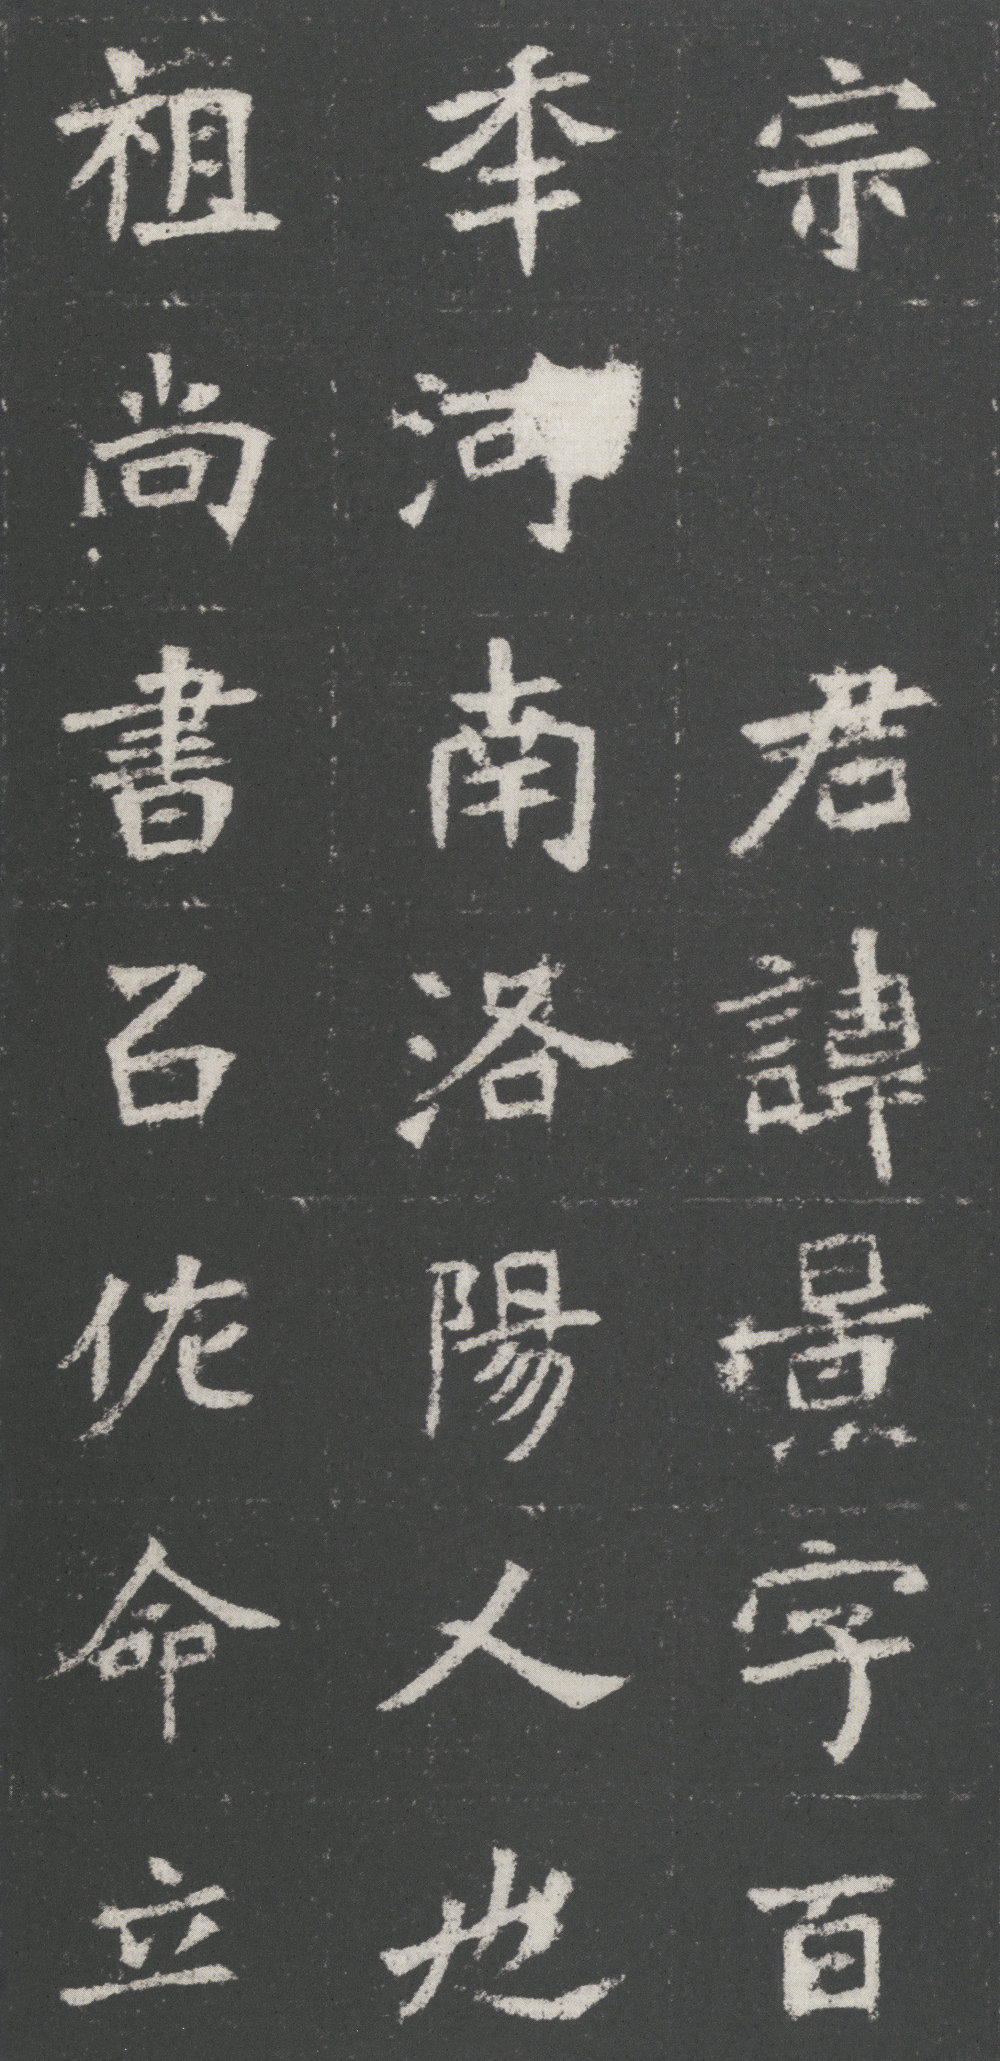 宗君諱景字百
秊河南洛陽人也
祖尚書㠯佐命立